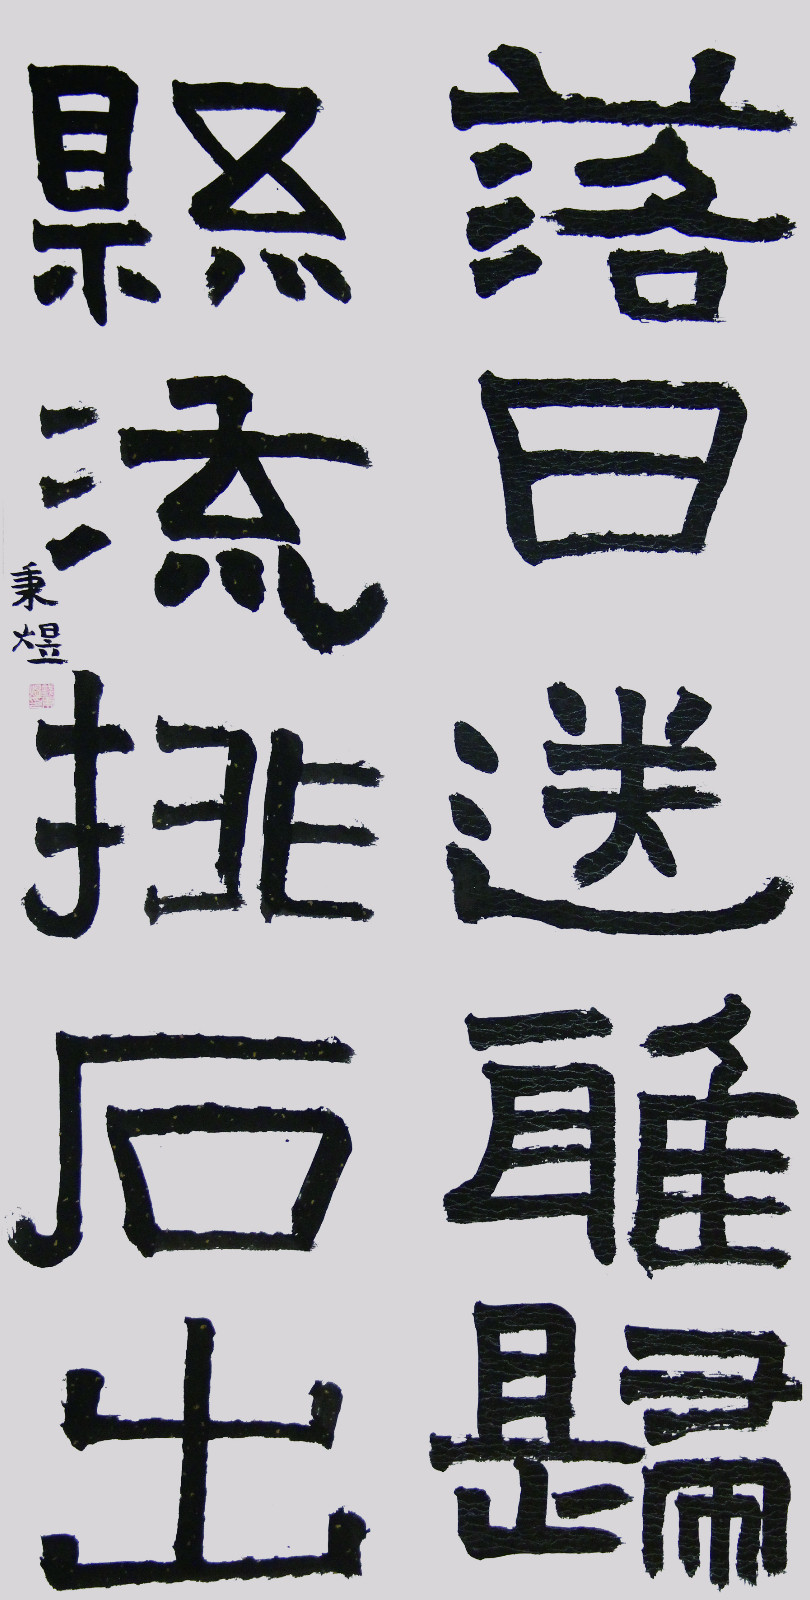 落日送雅歸
縣流排石出
秉煜